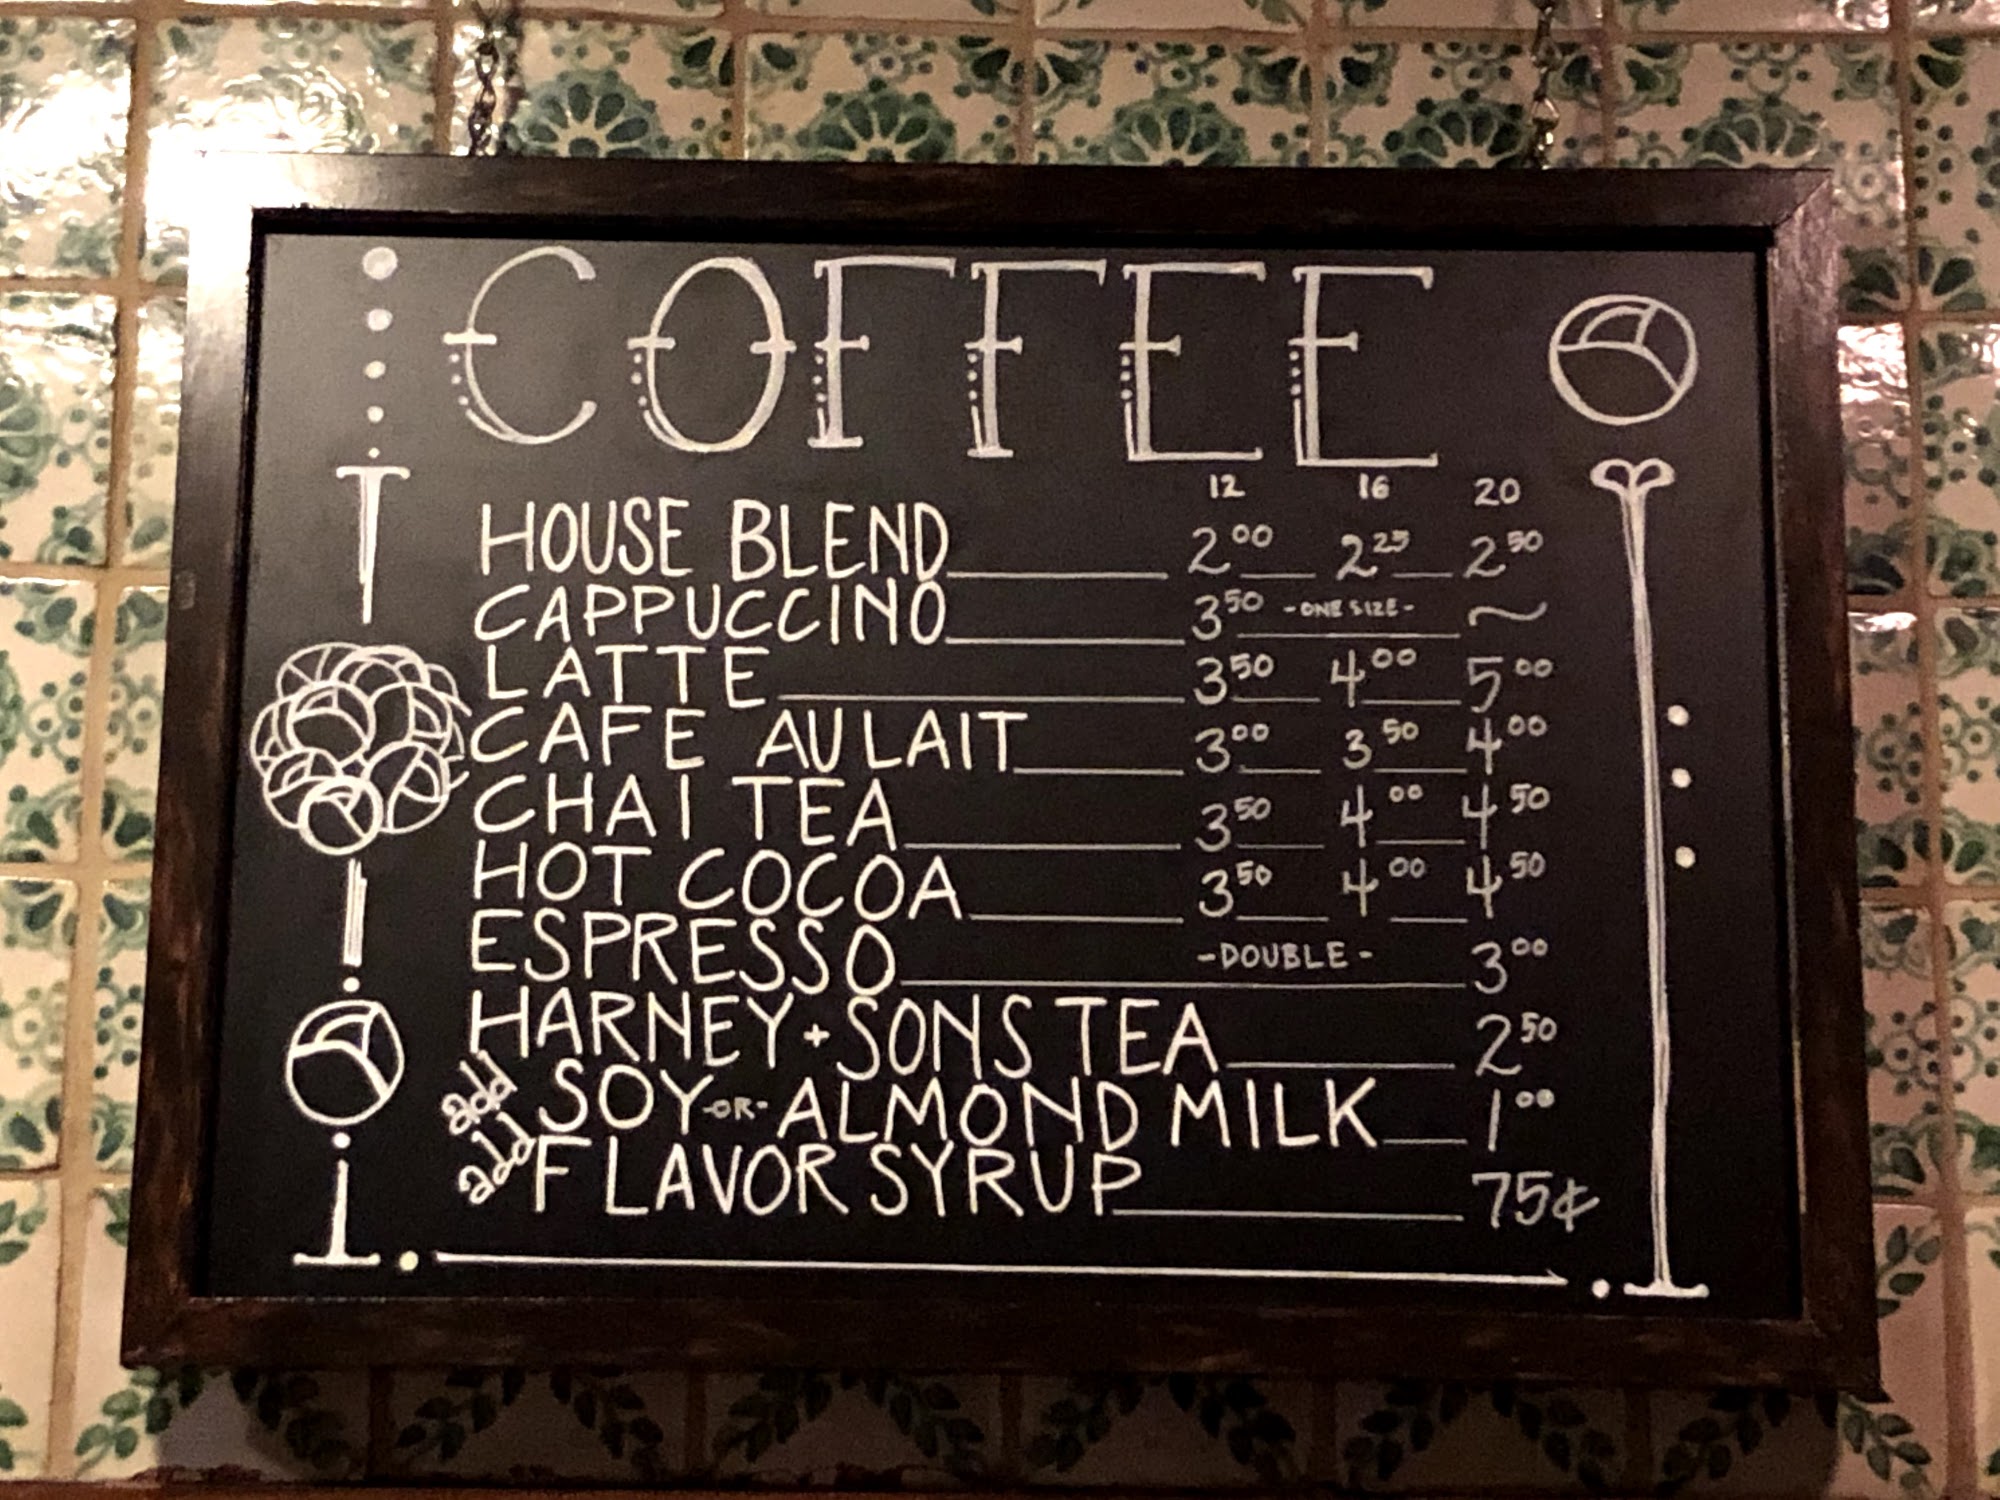 COFFEE
12 16 20
HOUSE BLEND 2.00 2.25 2.50
CAPPUCCINO 3.50 -ONE SIZE- ~
LATTE 3.50 4.00 5.00
CAFE AU LAIT 3.00 3.50 4.00
CHAI TEA 3.50 4.00 4.50
HOT COCOA 3.50 4.00 4.50
ESPRESSO -DOUBLE- 3.00
HARNEY + SONS TEA 2.50
add SOY -OR- ALMOND MILK 1.00
add FLAVOR SYRUP 75¢